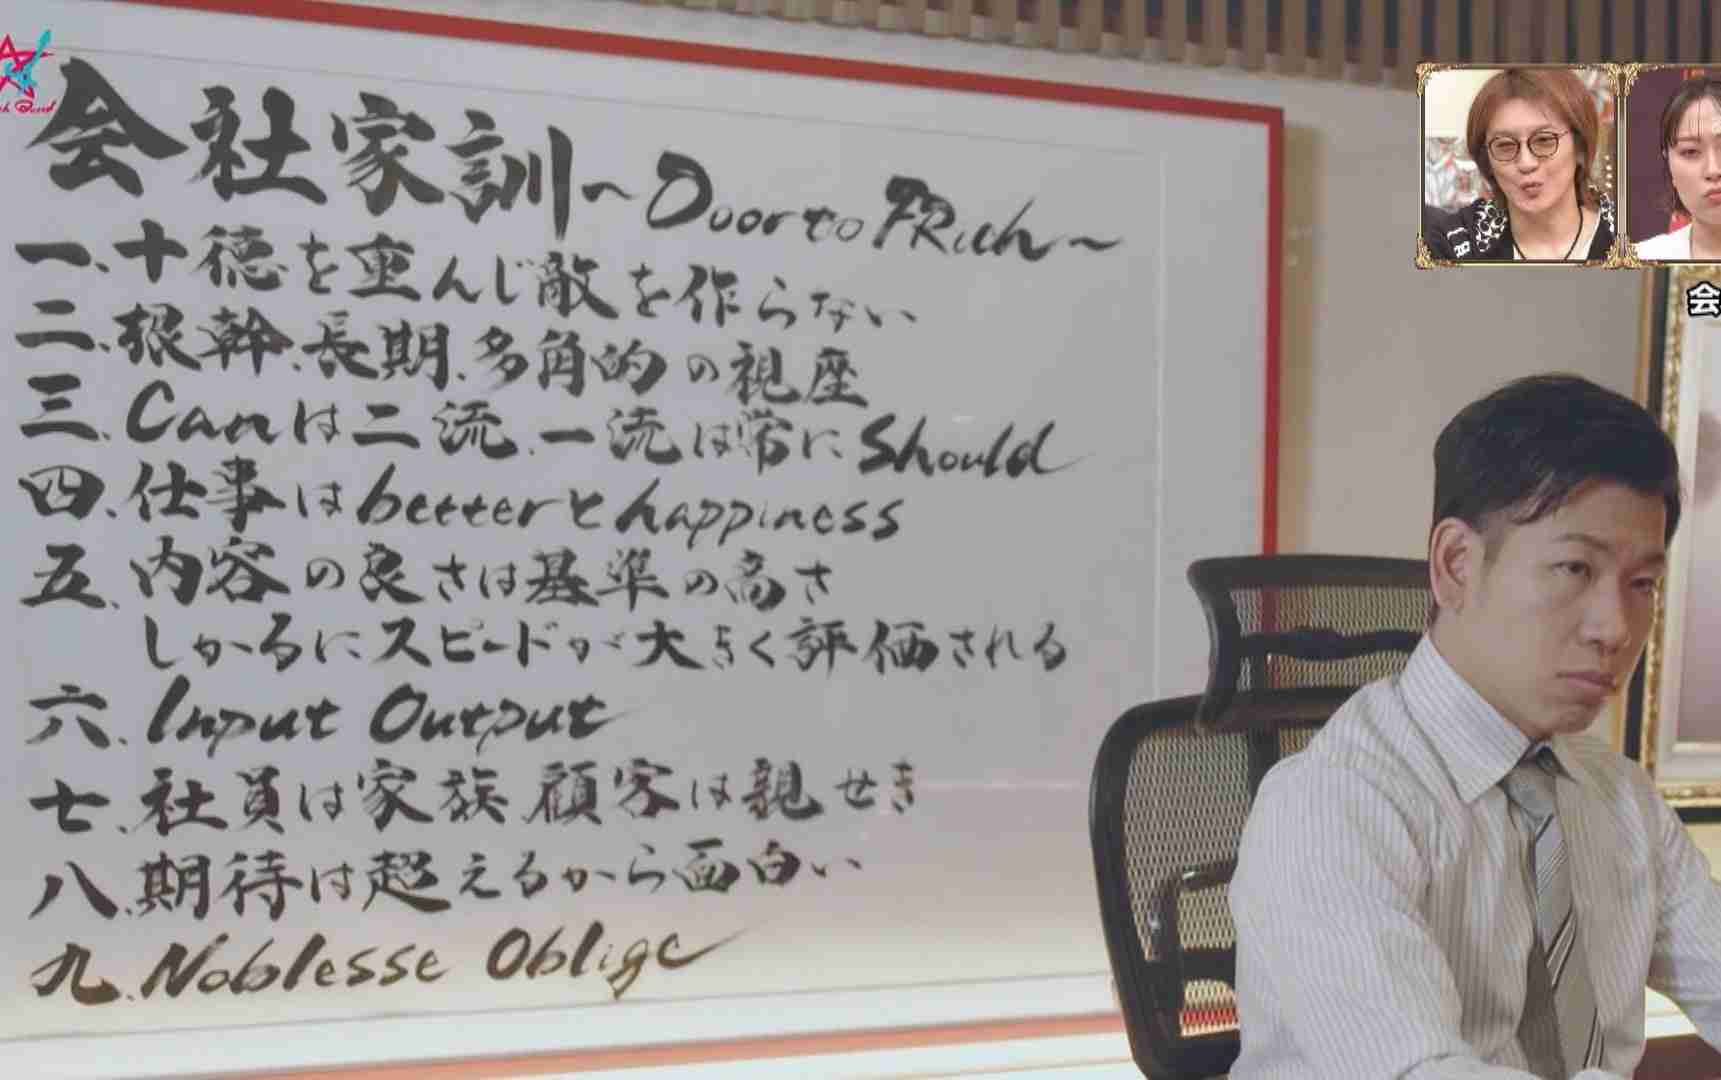 会社家訓～Door to PRich～
一、十徳を重んじ敵を作らない
二、根幹、長期、多角的の視座
三、Canは二流、一流は常にShould
四、仕事はbetterとhappiness
五、内容の良さは基準の高さ
しかるにスピードが大きく評価される
六、Input Output
七、社員は家族、顧客は親せき
八、期待は超えるから面白い
九、Noblesse Oblige
会